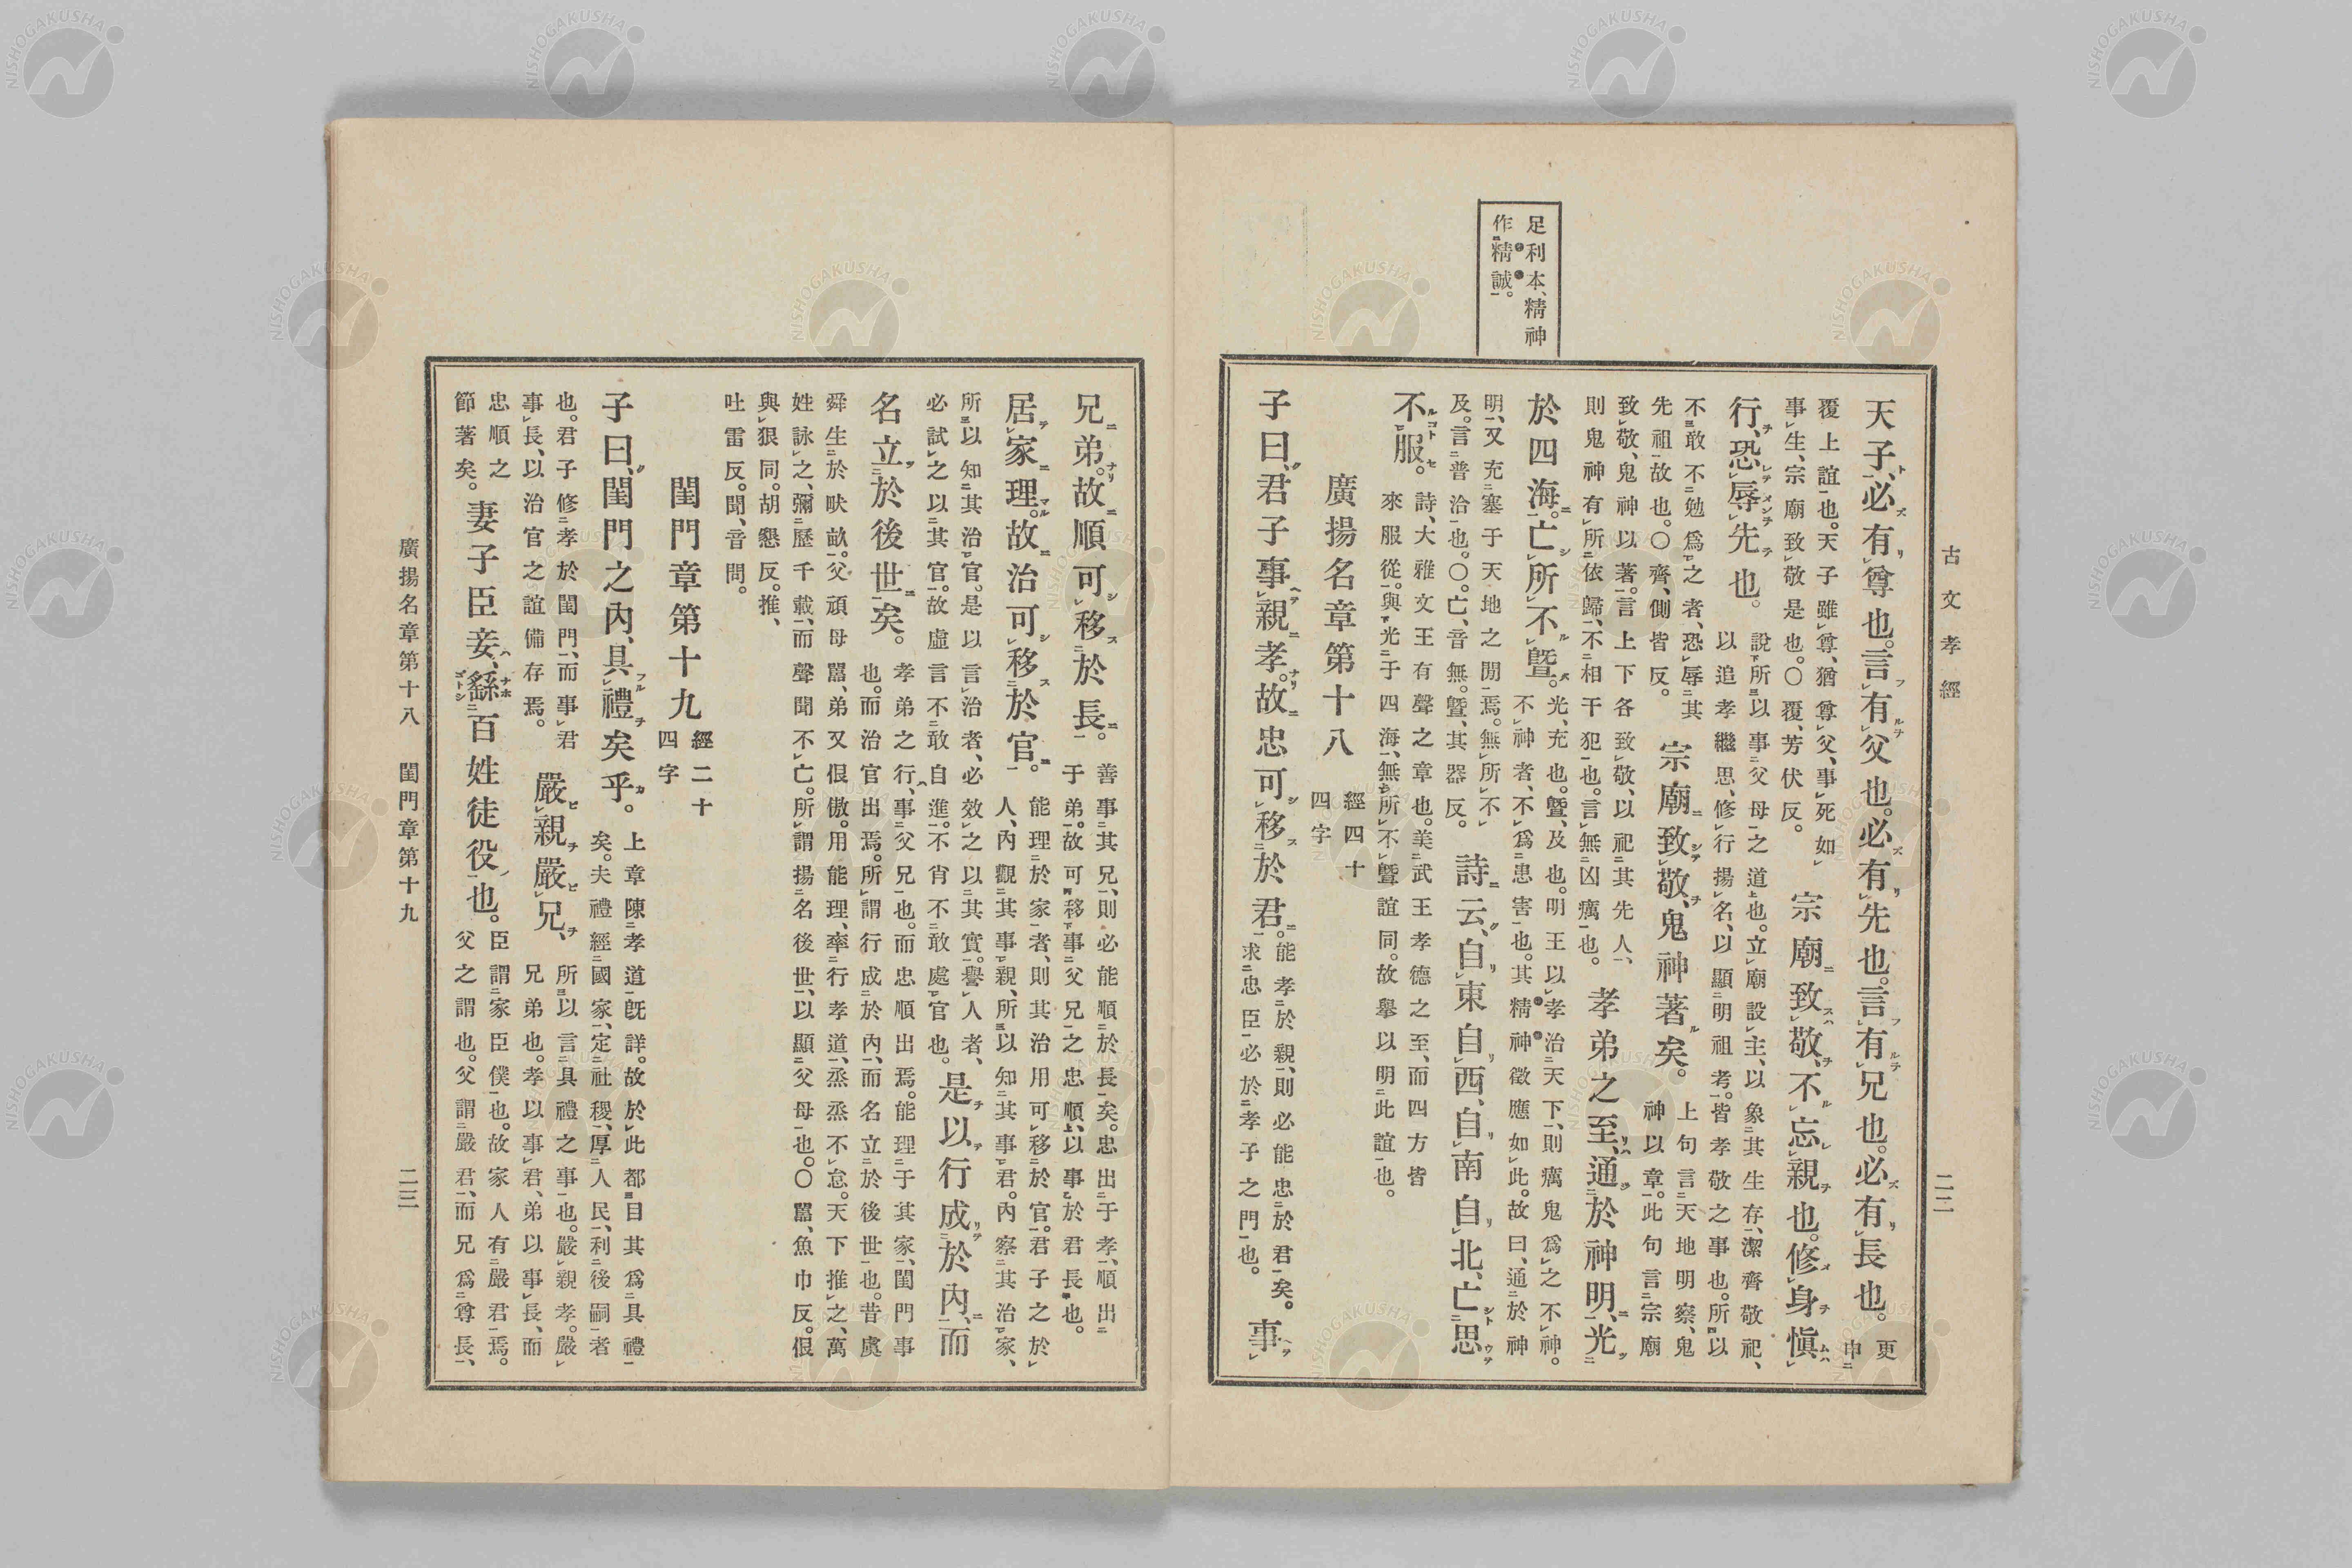 古文孝經
二二
足利本、精神
作精誠。
天子、必有尊也。言有父也。必有先也。言有兄也。必有長也。
更
申
覆上誼也。天子雖尊、猶尊父、事死如
事生、宗廟致敬是也。○覆、芳伏反。
宗廟致敬、不忘親也。修身愼
行、恐辱先也。
說所以事父母之道也。立廟設主、以象其生存、潔齊敬祀、
以追孝繼思、修行揚名、以顯明祖考。皆孝敬之事也。所以
不敢不勉爲之者、恐辱其
先祖故也。○齊、側皆反。
宗廟致敬、鬼神著矣。
上句言天地明察、鬼
神以章。此句言宗廟
致敬、鬼神以著。言上下各致敬、以祀其先人、
則鬼神有所依歸、不相干犯也。言無凶癘也。
孝弟之至、通於神明、光
於四海。亡所不曁。
光、充也。曁、及也。明王以孝治天下、則癘鬼爲之不神。
不神者、不爲患害也。其精神徵應如此。故曰、通於神
明、又充塞于天地之閒焉。無所不
及。言普洽也。○亡、音無。曁、其器反。
詩云、自東自西、自南自北、亡思
不服。
詩、大雅文王有聲之章也。美武王孝德之至、而四方皆
來服從、與光于四海、無所不曁誼同。故舉以明此誼也。
廣揚名章第十八
經四十
四字
子曰、君子事親孝。故忠可移於君。
能孝於親、則必能忠於君矣。
求忠臣必於孝子之門也。
事
兄弟。故順可移於長。
善事其兄、則必能順於長矣。忠出于孝、順出
于弟。故可移事父兄之忠順、以事於君長也。
居家理。故治可移於官。
能理於家者、則其治用可移於官。君子之於
人、內觀其事親、所以知其事君。內察其治家、
所以知其治官。是以言治者、必效之以其實。譽人者、
必試之以其官。故虛言不敢自進。不肖不敢處官也。
是以行成於內、而
名立於後世矣。
孝弟之行、事父兄也。而忠順出焉。能理于其家、閨門事
也。而治官出焉。所謂行成於內、而名立於後世也。昔虞
舜生於畎畝。父頑、母嚚、弟又佷傲。用能理、率行孝道、烝烝不怠。天下推之、萬
姓詠之、彌歷千載、而聲聞不亡。所謂揚名後世、以顯父母也。○嚚、魚巾反。佷
與狠同。胡懇反。推、
吐雷反。聞、音問。
閨門章第十九
經二十
四字
子曰、閨門之內、具禮矣乎。
上章陳孝道既詳。故於此都目其爲具禮
矣。夫禮經國家、定社稷、厚人民、利後嗣者
也。君子修孝於閨門、而事君
事長、以治官之誼備存焉。
嚴親嚴兄、
所以言具禮之事也。嚴親孝。嚴
兄弟也。孝以事君、弟以事長、而
忠順之
節著矣。
妻子臣妾、繇百姓徒役也。
臣謂家臣僕也。故家人有嚴君焉。
父之謂也。父謂嚴君、而兄爲尊長、
廣揚名章第十八　閨門章第十九
二三
NISHOGAKUSHA